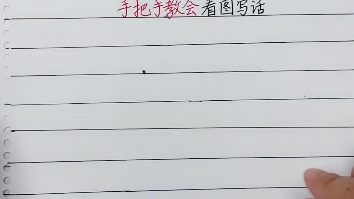 手把手教会看图写话